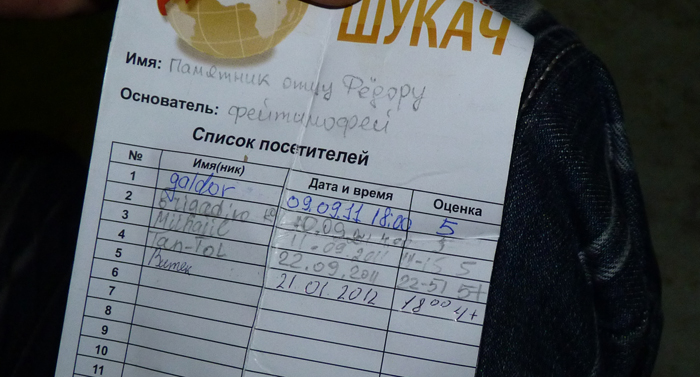 ШУКАЧ
Имя: Памятник отцу Фёдору
Основатель: фейтимофей
Список посетителей
№ Имя(ник) Дата и время Оценка
1 galdor 09.09.11 18.00 5
2 5
3 Mithajie 11.09.2011 5
4 Tan-Tol 22.09.2011 22-51 5+
5 Витек 21.01.2012 18 00 4+
6
7
8
9
10
11